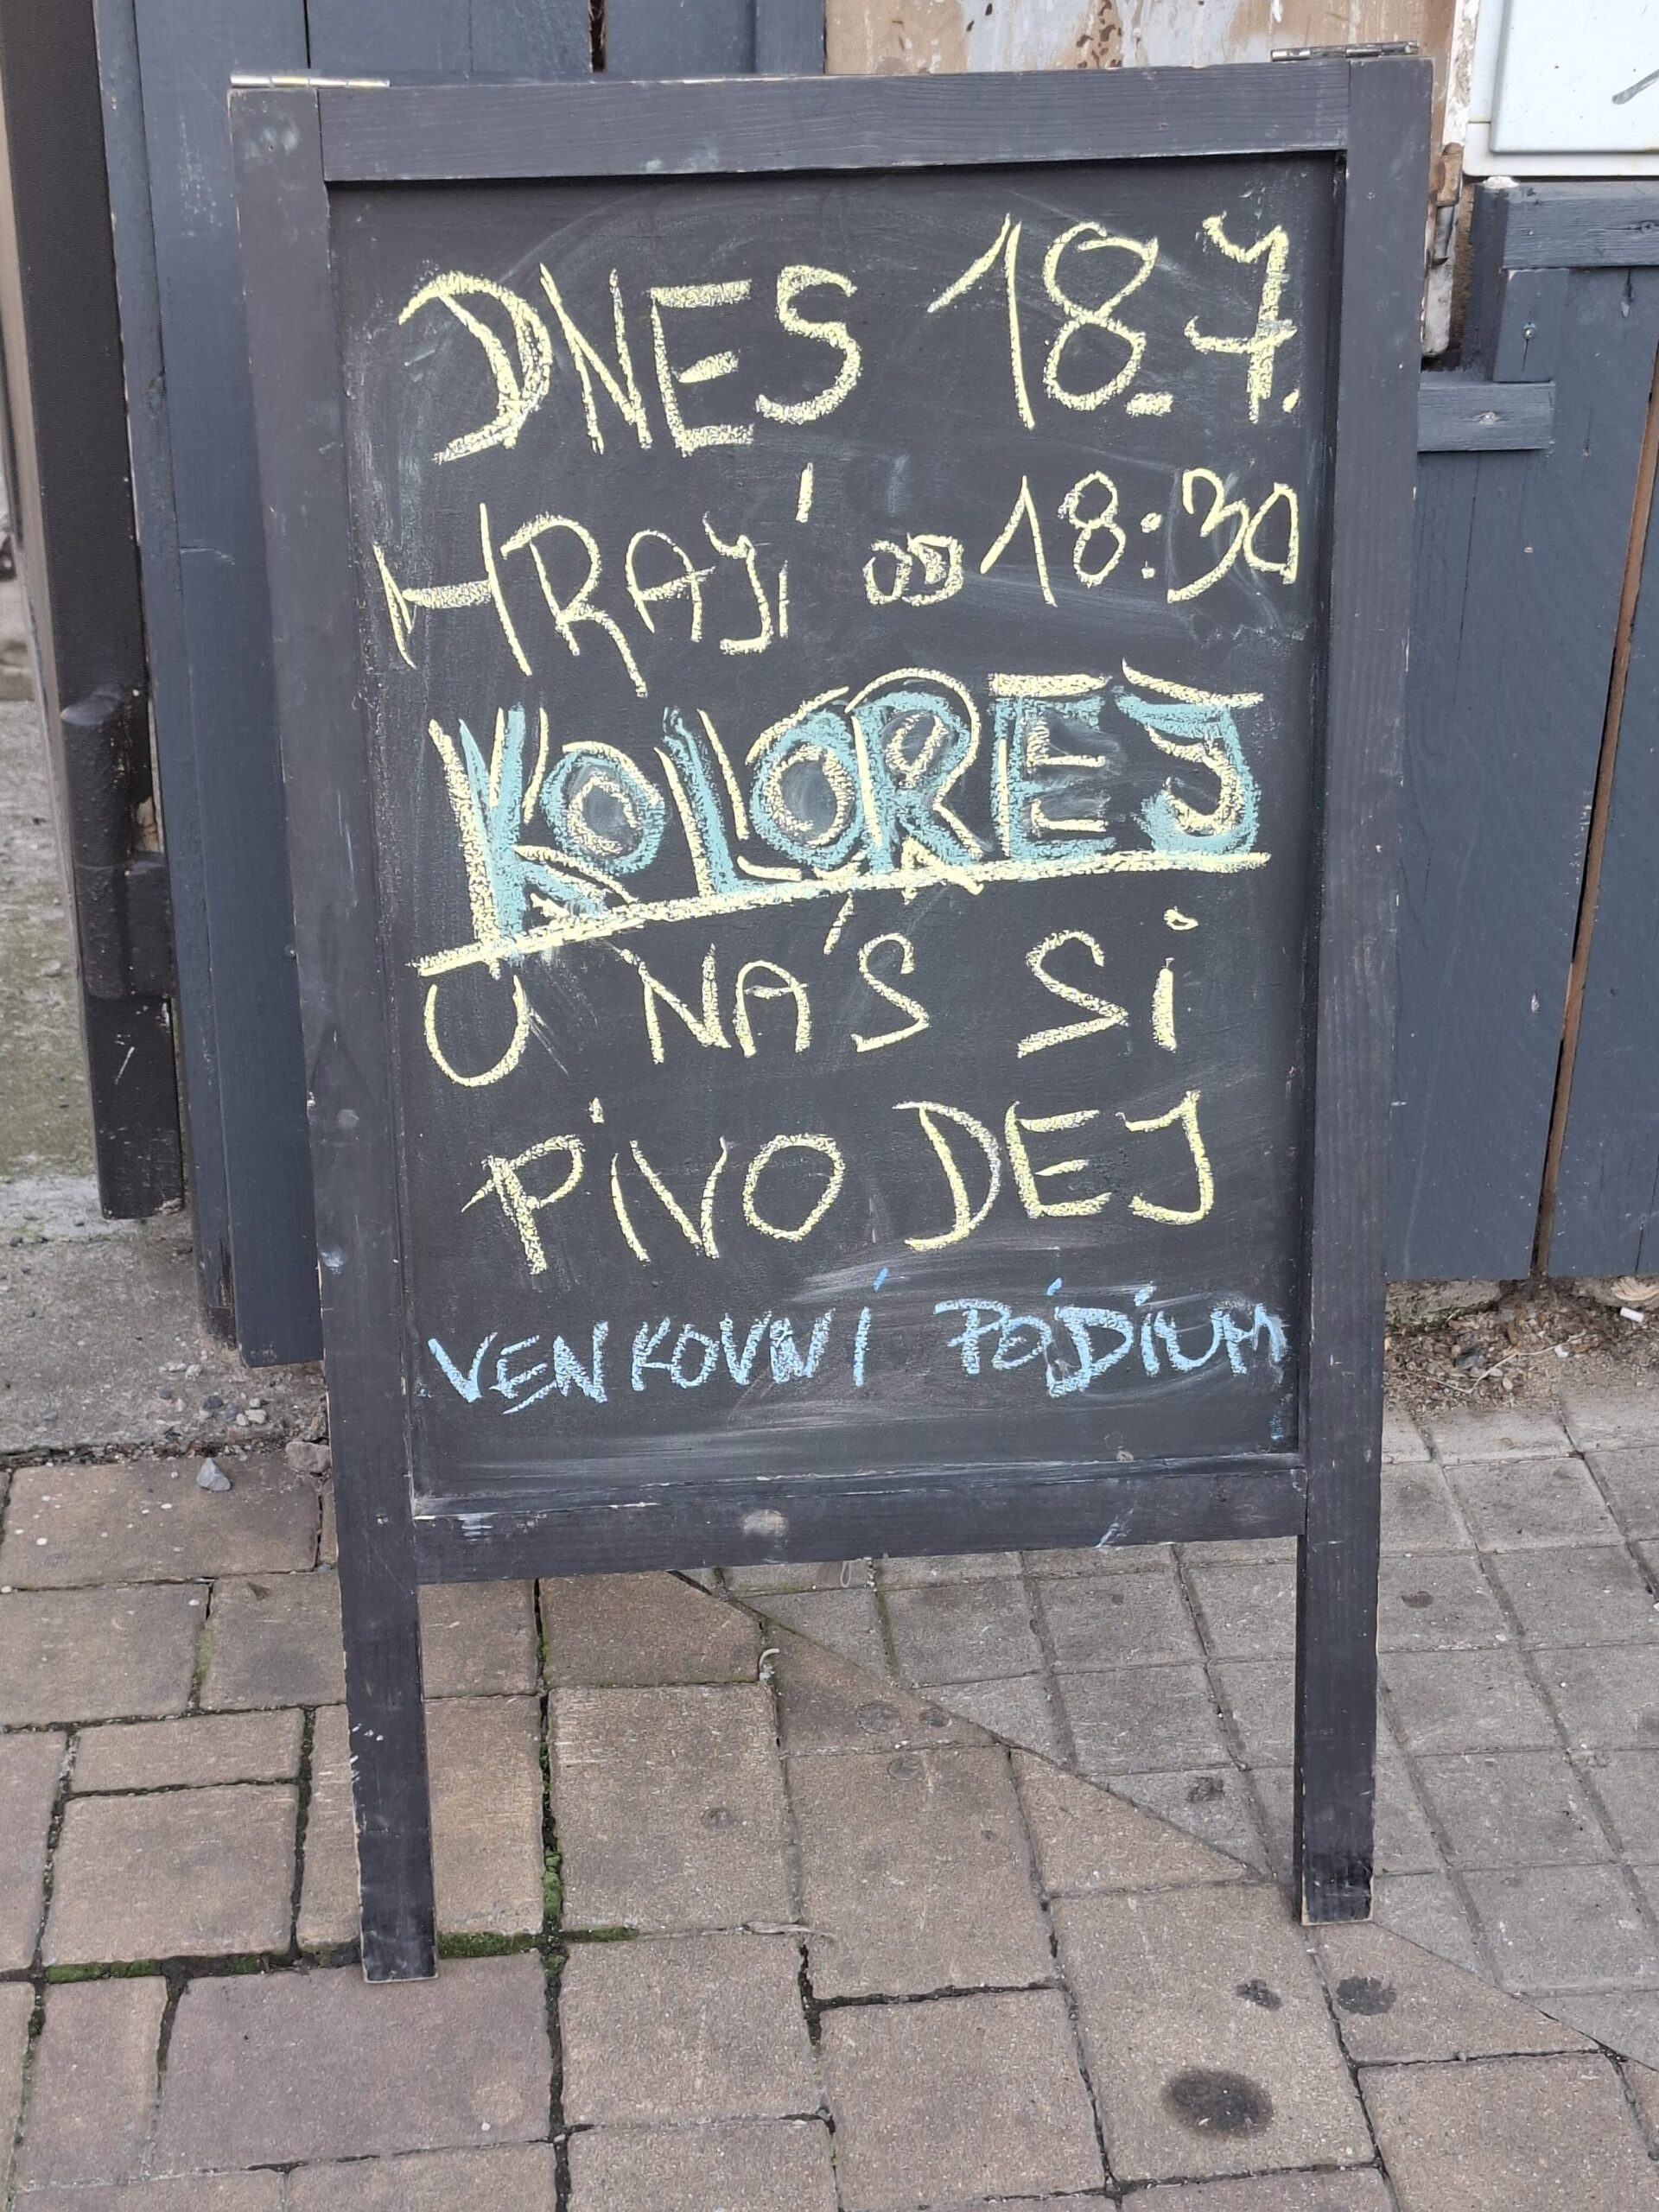 DNES 18.7.
HRAJÍ OD 18:30
KOLOREJ
U NÁS SI
PIVO DEJ
VENKOVNÍ PÓDIUM